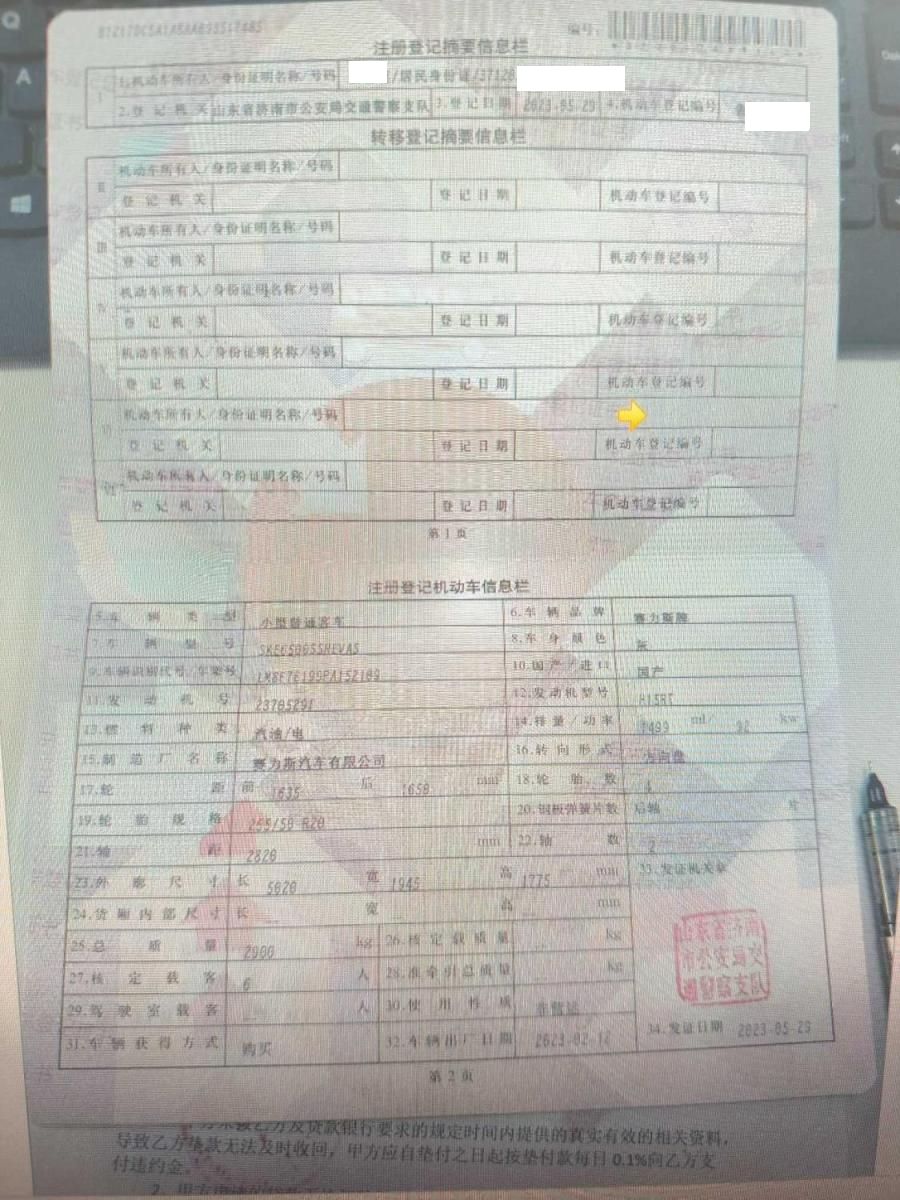 编号:
注册登记摘要信息栏
I 1.机动车所有人/身份证明名称/号码 /居民身份证/37120
2.登记机关 山东省济南市公安局交通警察支队 3.登记日期 2023.05.29 4.机动车登记编号
转移登记摘要信息栏
II 机动车所有人/身份证明名称/号码
登记机关 登记日期 机动车登记编号
III 机动车所有人/身份证明名称/号码
登记机关 登记日期 机动车登记编号
机动车所有人/身份证明名称/号码
登记机关 登记日期 机动车登记编号
机动车所有人/身份证明名称/号码
登记机关 登记日期 机动车登记编号
机动车所有人/身份证明名称/号码
登记机关 登记日期 机动车登记编号
机动车所有人/身份证明名称/号码
登记机关 登记日期 机动车登记编号
第1页
注册登记机动车信息栏
5.车辆类型 小型普通客车 6.车辆品牌 赛力斯牌
7.车辆型号 8.车身颜色 灰
9.车辆识别代号/车架号 10.国产/进口 国产
11.发动机号 12.发动机型号 H15RT
13.燃料种类 汽油/电 14.排量/功率 1499 ml/ 92 kw
15.制造厂名称 赛力斯汽车有限公司 16.转向形式 方向盘
17.轮距 前 1635 后 1650 mm 18.轮胎数 4
19.轮胎规格 255/50 R20 20.钢板弹簧片数 后轴 片
21.轴距 2820 mm 22.轴数 2
23.外廓尺寸 长 5020 宽 1945 高 1775 mm 33.发证机关章
24.货厢内部尺寸 长 宽 高 mm
25.总质量 2900 kg 26.核定载质量 kg
山东省济南
市公安局交
通警察支队
27.核定载客 6 人 28.准牵引总质量 kg
29.驾驶室载客 人 30.使用性质 非营运
31.车辆获得方式 购买 32.车辆出厂日期 2023-02-12 34.发证日期 2023-05-29
第2页
乙方及贷款银行要求的规定时间内提供的真实有效的相关资料,
导致乙方垫款无法及时收回,甲方应自垫付之日起按垫付款每日0.1%向乙方支
付违约金。